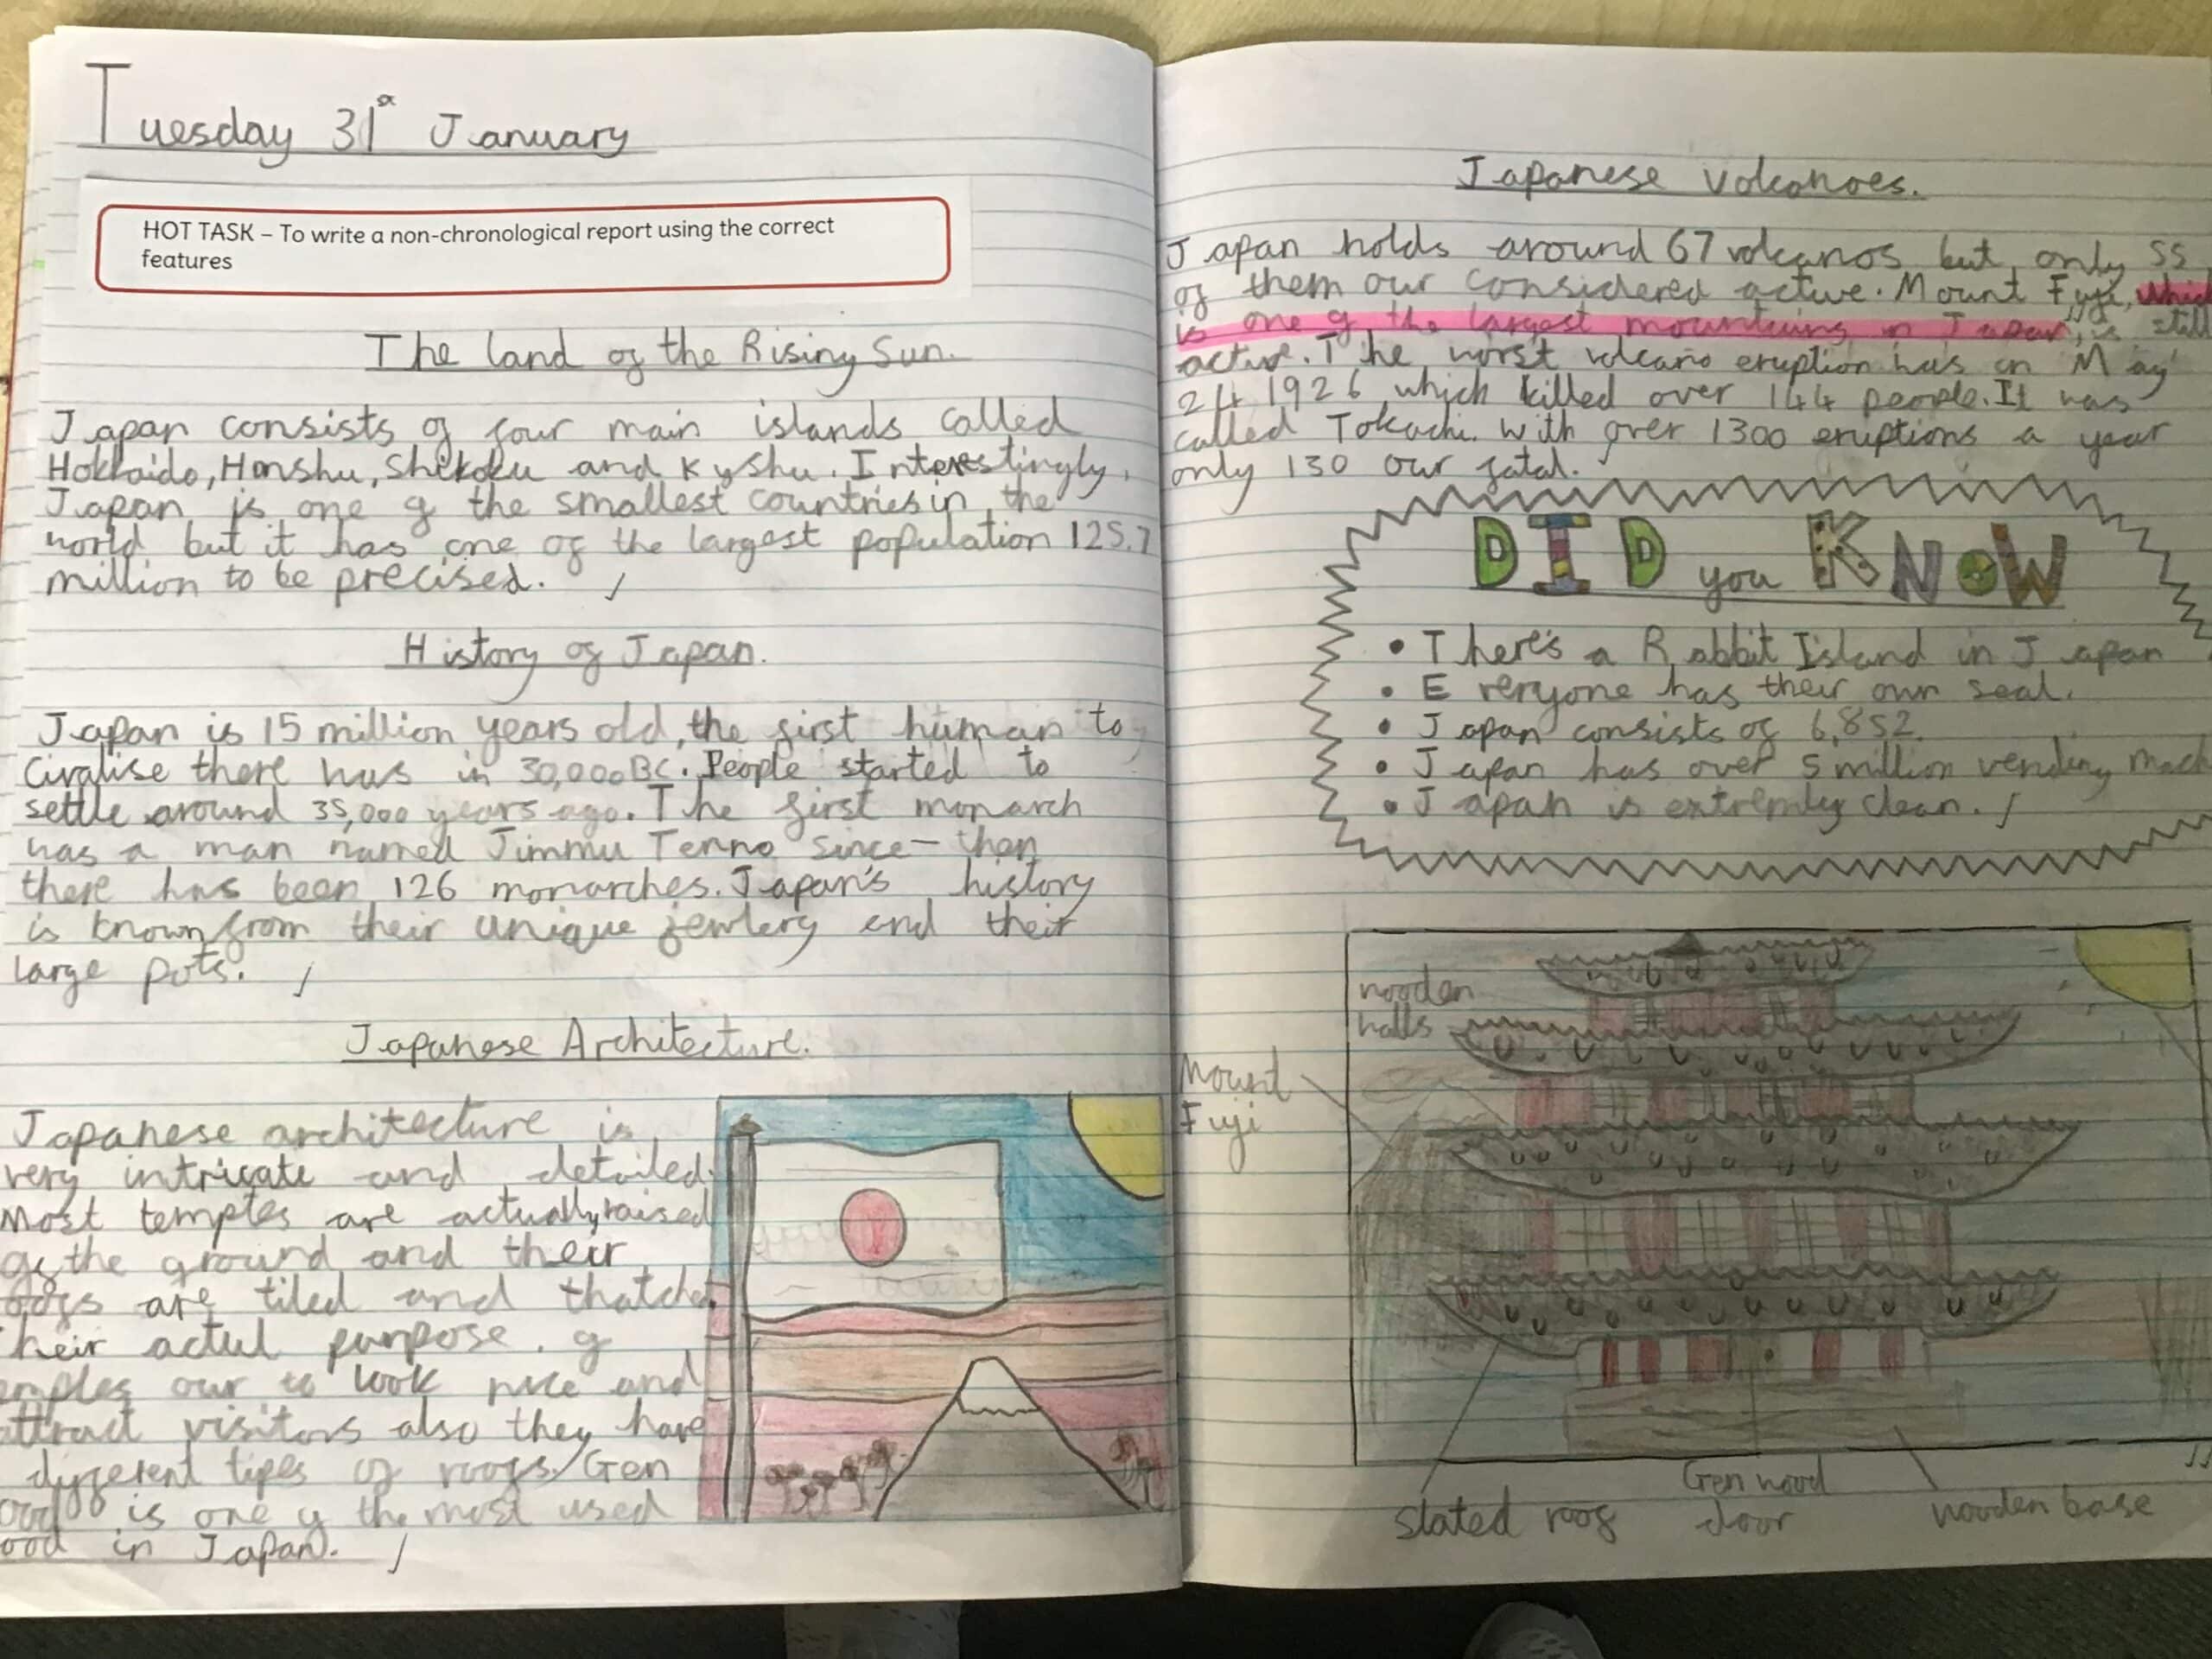 Tuesday 31st January
HOT TASK – To write a non-chronological report using the correct
features
The land of the Rising Sun.
Japan consists of four main islands called
Hokkaido, Honshu, Shikoku and Kyshu. Interestingly,
Japan is one of the smallest countries in the
world but it has one of the largest population 125.7
million to be precised.
History of Japan.
Japan is 15 million years old, the first human to
Civalise there was in 30,000BC. People started to
settle around 35,000 years ago. The first monarch
was a man named Jimmu Tenno since – then
there has been 126 monarches. Japan's history
is known from their unique jewlery and their
large pots.
Japanese Architecture.
Japanese architecture is
very intricate and detailed.
Most temples are actually raised
of the ground and their
oofs are tiled and thatched.
heir actul purpose of
emples our to look nice and
attract visitors also they have
dyfferent tipes of roofs. Gen
ood is one of the most used
ood in Japan.
Japanese Volcanoes.
Japan holds around 67 volcanos but only 55
of them our considered active. Mount Fuji, which
is one of the largest mountains in Japan, is still
active. The worst volcano eruption was on May
24 1926 which killed over 144 people. It was
called Tokachi. With over 1300 eruptions a year
only 130 our fatal.
DID you KNOW
• There's a Rabbit Island in Japan
• Everyone has their own seal.
• Japan consists of 6,852.
• Japan has over 5 million vending mach
• Japan is extremly clean.
wooden
walls
Mount
Fuji
slated roof
Gen wood
door
wooden base